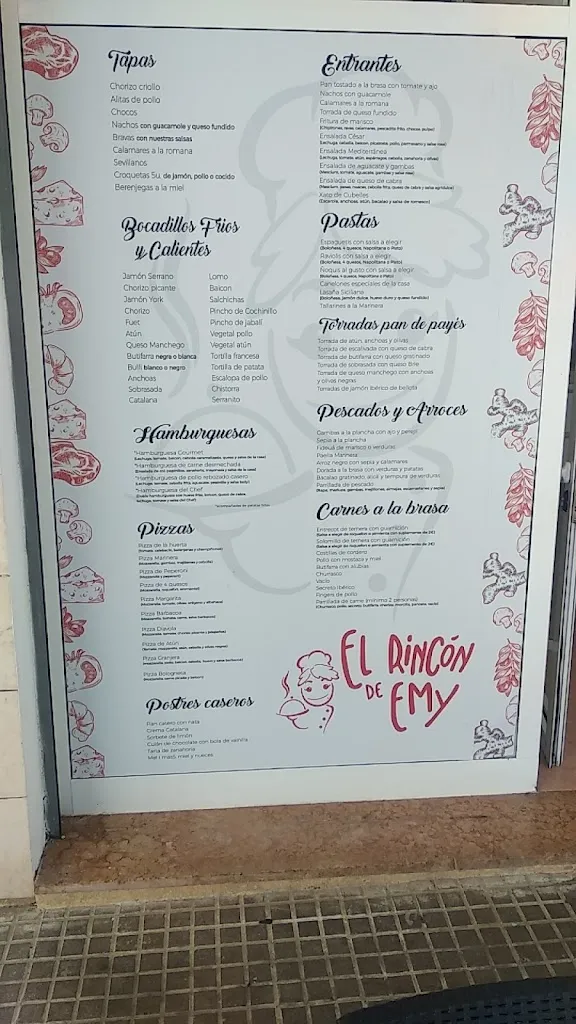 Tapas
Chorizo criollo
Alitas de pollo
Chocos
Nachos con guacamole y queso fundido
Bravas con nuestras salsas
Calamares a la romana
Sevillanos
Croquetas 5u. de jamón, pollo o cocido
Berenjegas a la miel
Bocadillos Frios
y Calientes
Jamón Serrano
Chorizo picante
Jamón York
Chorizo
Fuet
Atún
Queso Manchego
Butifarra negra o blanca
Bulli blanco o negro
Anchoas
Sobrasada
Catalana
Lomo
Baicon
Salchichas
Pincho de Cochinillo
Pincho de jabalí
Vegetal pollo
Vegetal atún
Tortilla francesa
Tortilla de patata
Escalopa de pollo
Chistorra
Serranito
Hamburguesas
*Hamburguesa Gourmet
*Hamburguesa de carne desmechada
*Hamburguesa de pollo rebozado casero
*Hamburguesa del Chef
Pizzas
Pizza de la huerta
Pizza Marinera
Pizza de Peperoni
Pizza de 4 quesos
Pizza Margarita
Pizza Barbacoa
Pizza Diavola
Pizza de Atún
Pizza Granjera
Pizza Bolognesa
Postres caseros
Flan casero con nata
Crema Catalana
Sorbete de limón
Culán de chocolate con bola de vainilla
Tarta de zanahoria
Mel i mató, miel y nueces
Entrantes
Pan tostado a la brasa con tomate y ajo
Nachos con guacamole
Calamares a la romana
Torrada de queso fundido
Fritura de marisco
Ensalada César
Ensalada Mediterránea
Ensalada de aguacate y gambas
Ensalada de queso de cabra
Xató de Cubelles
Pastas
Espaguetis con salsa a elegir
(Boloñesa, 4 quesos, Napolitana o Pisto)
Raviolis con salsa a elegir
(Boloñesa, 4 quesos, Napolitana o Pisto)
Ñoquis al gusto con salsa a elegir
(Boloñesa, 4 quesos, Napolitana o Pisto)
Canelones especiales de la casa
Lasaña Siciliana
(Boloñesa, jamón dulce, huevo duro y queso fundido)
Tallarines a la Marinera
Torradas pan de payés
Torrada de atún, anchoas y olivas
Torrada de escalivada con queso de cabra
Torrada de butifarra con queso gratinado
Torrada de sobrasada con queso Brie
Torrada de queso manchego con anchoas
y olivas negras
Torradas de jamón ibérico de bellota
Pescados y Arroces
Gambas a la plancha con ajo y perejil
Sepia a la plancha
Fideuá de marisco o verduras
Paella Marinera
Arroz negro con sepia y calamares
Dorada a la brasa con verduras y patatas
Bacalao gratinado, alioli y tempura de verduras
Parrillada de pescado
Carnes a la brasa
Entrecot de ternera con guarnición
Solomillo de ternera con guarnición
Costillas de cordero
Pollo con mostaza y miel
Butifarra con alubias
Churrasco
Vacío
Secreto Ibérico
Fingers de pollo
Parrillada de carne (mínimo 2 personas)
EL RINCÓN
DE EMY